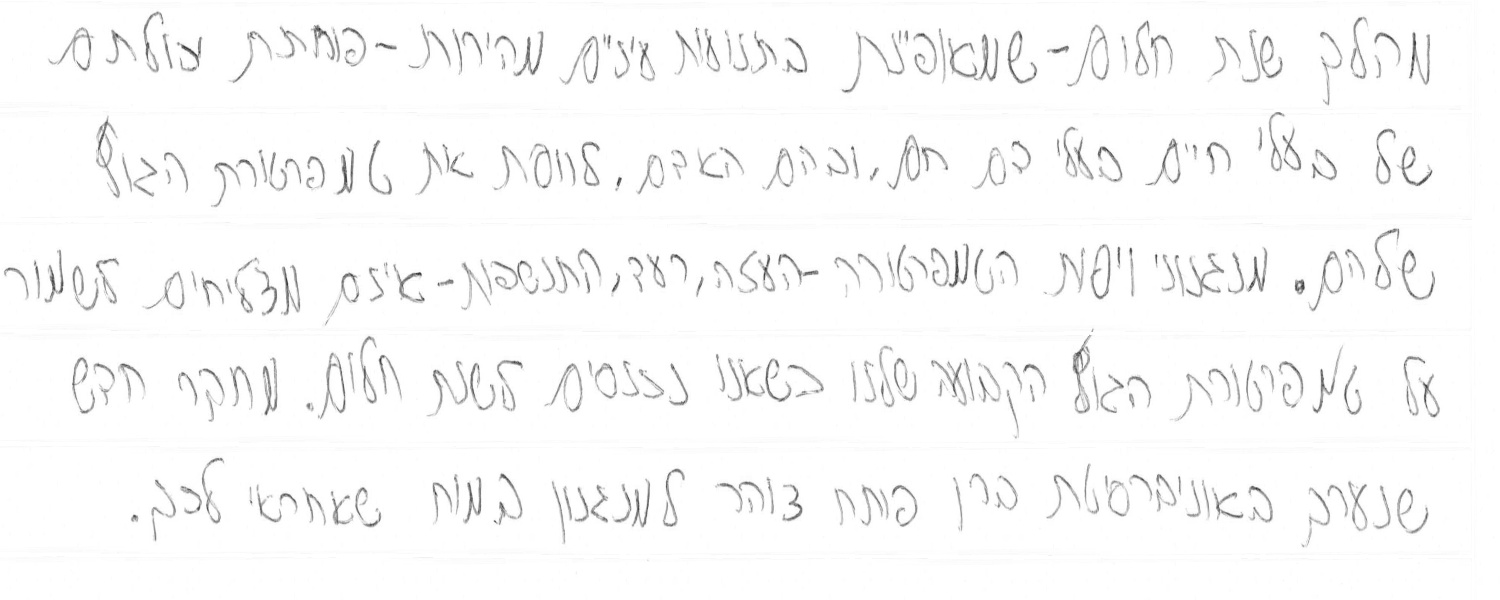 מהלך שנת חלום-שמאופיינת בתנועות עיניים מהירות-פוחתת יכולתם
של בעלי חיים בעלי דם חם, ובהם האדם, לווסת את טמפרטורת הגוף
שלהם. מנגנוני ויסות הטמפרטורה-הזעה, רעד, התנשפות-אינם מצליחים לשמור
על טמפרטורת הגוף הקבועה שלנו כשאנו נכנסים לשנת חלום. מחקר חדש
שנערך באוניברסיטת ברן פותח צוהר למנגנון במוח שאחראי לכך.